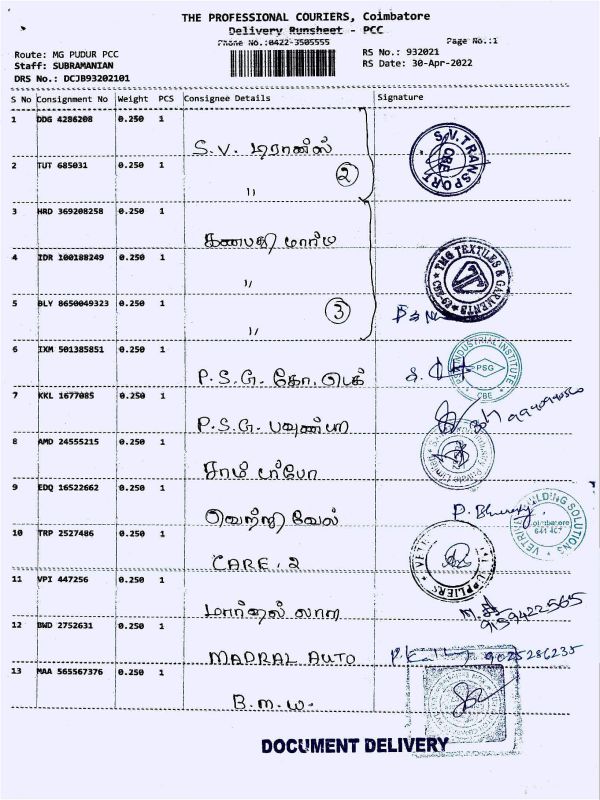 THE PROFESSIONAL COURIERS, Coimbatore
Delivery Runsheet - PCC
Phone No.:0422-3505555 Page No.:1
Route: MG PUDUR PCC RS No.: 932021
Staff: SUBRAMANIAN RS Date: 30-Apr-2022
DRS No.: DCJB93202101
S No Consignment No Weight PCS Consignee Details Signature
1 DDG 4286208 0.250 1
S.V. டிரான்ஸ்
S.V. TRANSPORT CBE
2 TUT 685031 0.250 1
" 2
3 HRD 369208258 0.250 1
கணபதி மார்ம
4 IDR 100188249 0.250 1
"
TMG TEXTILES & GARMENTS
5 BLY 8650049323 0.250 1
" 3
6 IXM 501385851 0.250 1
P.S.G. கோ. டெக்
PSG INDUSTRIAL INSTITUTE PSG CBE
7 KKL 1677085 0.250 1
P.S.G. பவுண்டரி
8 AMD 24555215 0.250 1
சாமி டர்போ
9 EDQ 16522662 0.250 1
வெற்றி வேல்
VETRIVEL BUILDING SOLUTIONS Coimbatore 641 407
10 TRP 2527486 0.250 1
CARE . 2
SUPPLIERS
11 VPI 447256 0.250 1
9159422565
12 BWD 2752631 0.250 1
MADRAL AUTO
9025286235
13 MAA 565567376 0.250 1
B.M.W.
DOCUMENT DELIVERY